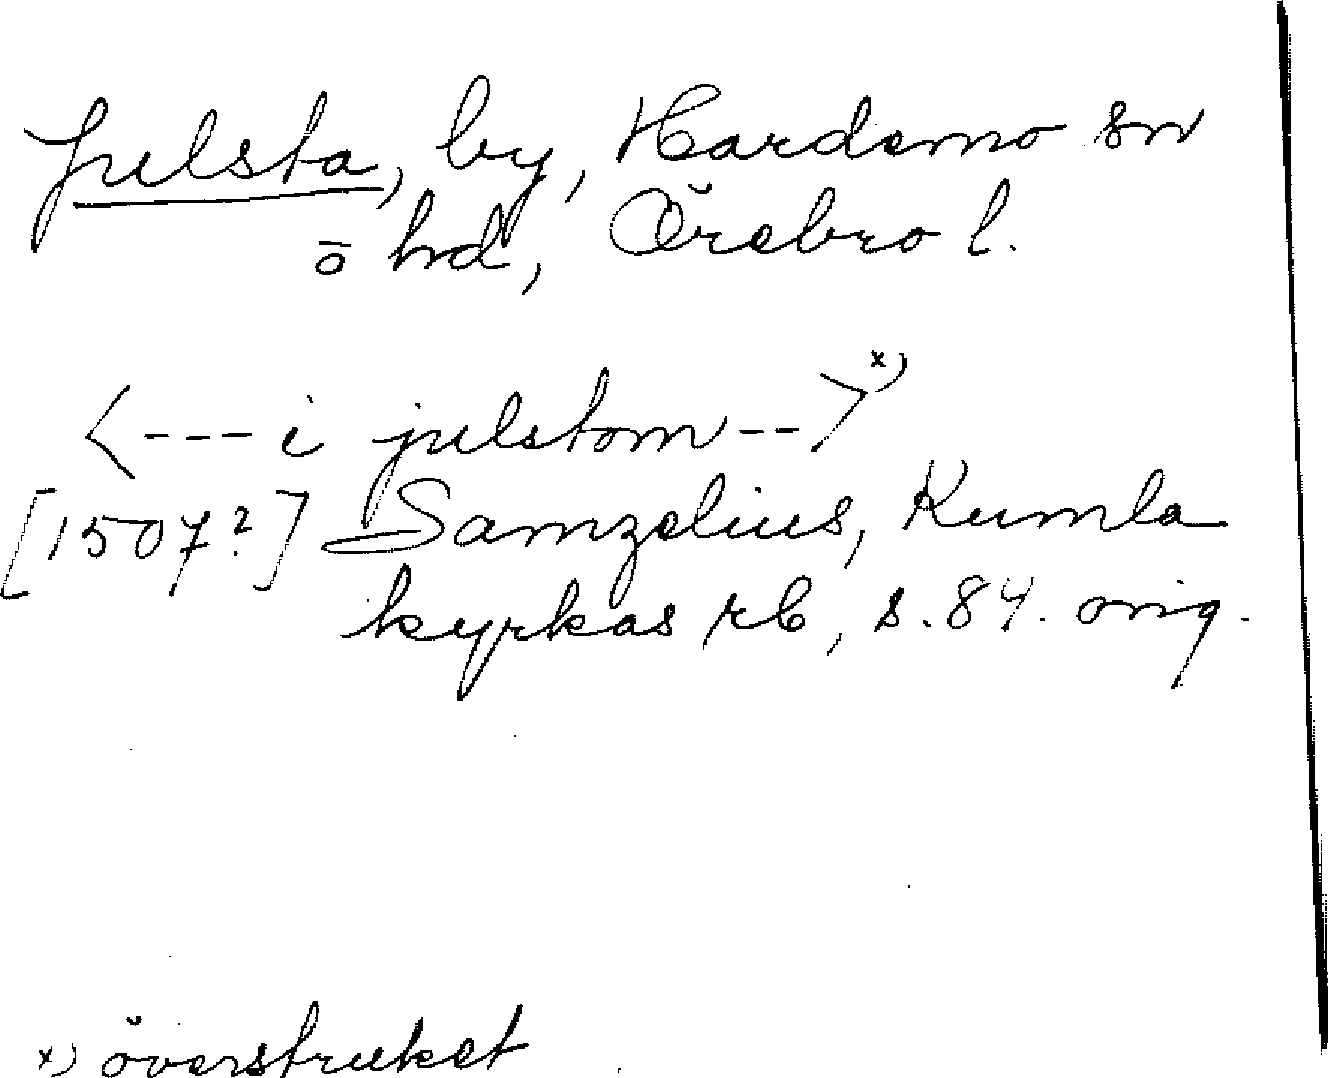 Julsta, by, Hardemo sn
ö hd, Örebro l.
<---i julstom-->x)
[1507?] Samzelius, Kumla
kyrkas rb, s. 84. orig.
x) överstruket